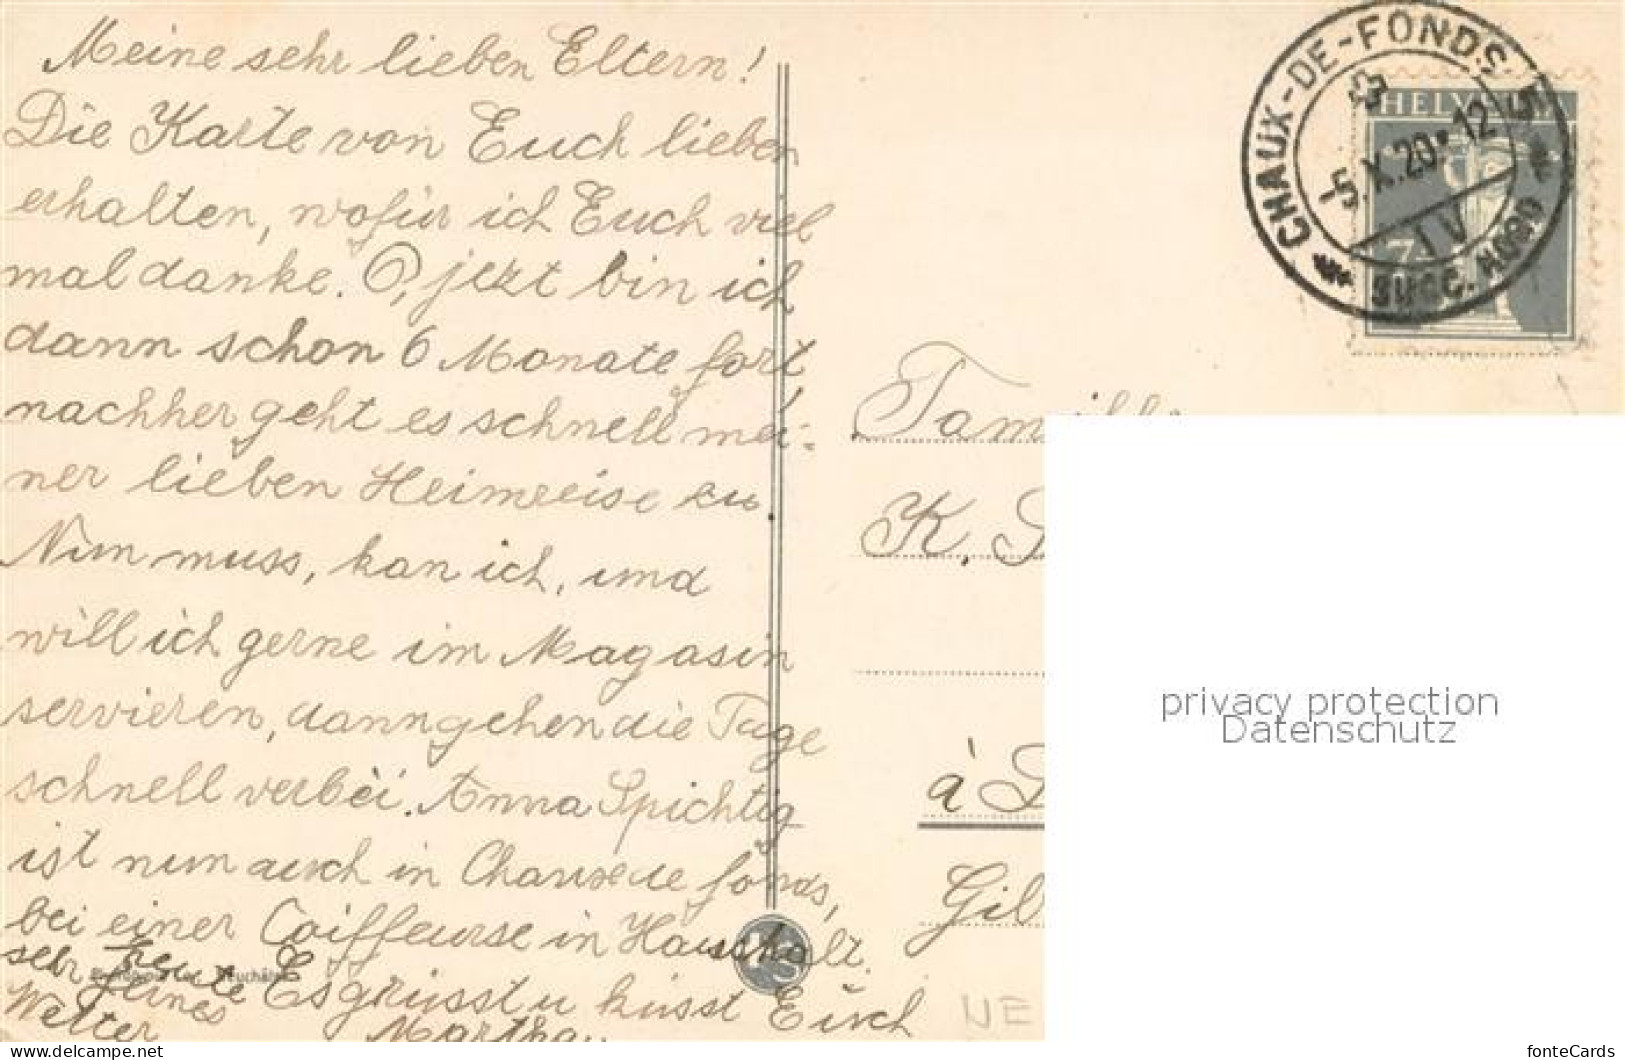 Meine sehr lieben Eltern!
Die Karte von Euch lieben
erhalten, wofür ich Euch viel
mal danke. O, jezt bin ich
dann schon 6 Monate fort
nachher geht es schnell mei-
ner lieben Heimreise zu.
Nun muss, kan ich, und
will ich gerne im Magasin
servieren, dann gehen die Tage
schnell verbei. Anna Spichtig
ist nun auch in Chauxdefonds,
bei einer Coiffeurse in Haushalt.
Es grüsst u küsst Euch
Martha
heute
sehr feines
Wetter
CHAUX-DE-FONDS 5
-5.X.20.12
IV
SUCC. NORD
HELVETIA
7½
Famille
K. S
à S
Gis
NE
privacy protection
Datenschutz
https://www.ansichtskarten-center.de/
fonteCards